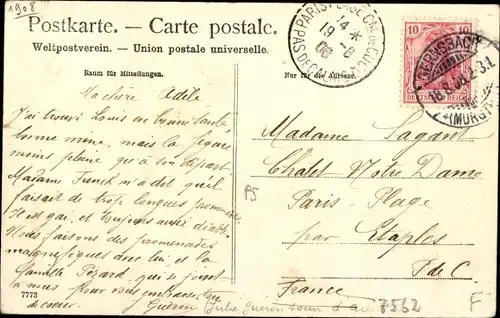 1908
Postkarte. — Carte postale.
Weltpostverein. — Union postale universelle.
Raum für Mitteilungen.
Nur für die Adresse.
PARIS-PLAGE
PAS DE CALAIS
14 *
19 -8
08
10
10
DEUTSCHES REICH
GERNSBACH
18.8.08.2-3.N.
(MURGTAL)
Ma chère Adèle
J'ai trouvé Louis en bonne santé
bonne mine, mais la figure
moins pleine qu'à son départ
Madame Funck m'a dit qu'il
faisait de trop longues promenades
Il est gai, et toujours aussi
Nous faisons des promenades
magnifiques avec lui et la
famille Pézard, qui se joint
à nous pour vous embrasser
de coeur. J. Guérin
Madame Sagant
Chalet Notre Dame
Paris-Plage
par Etaples
P de C.
France
PS
7773
Julie Guérin soeur d'
7562
F